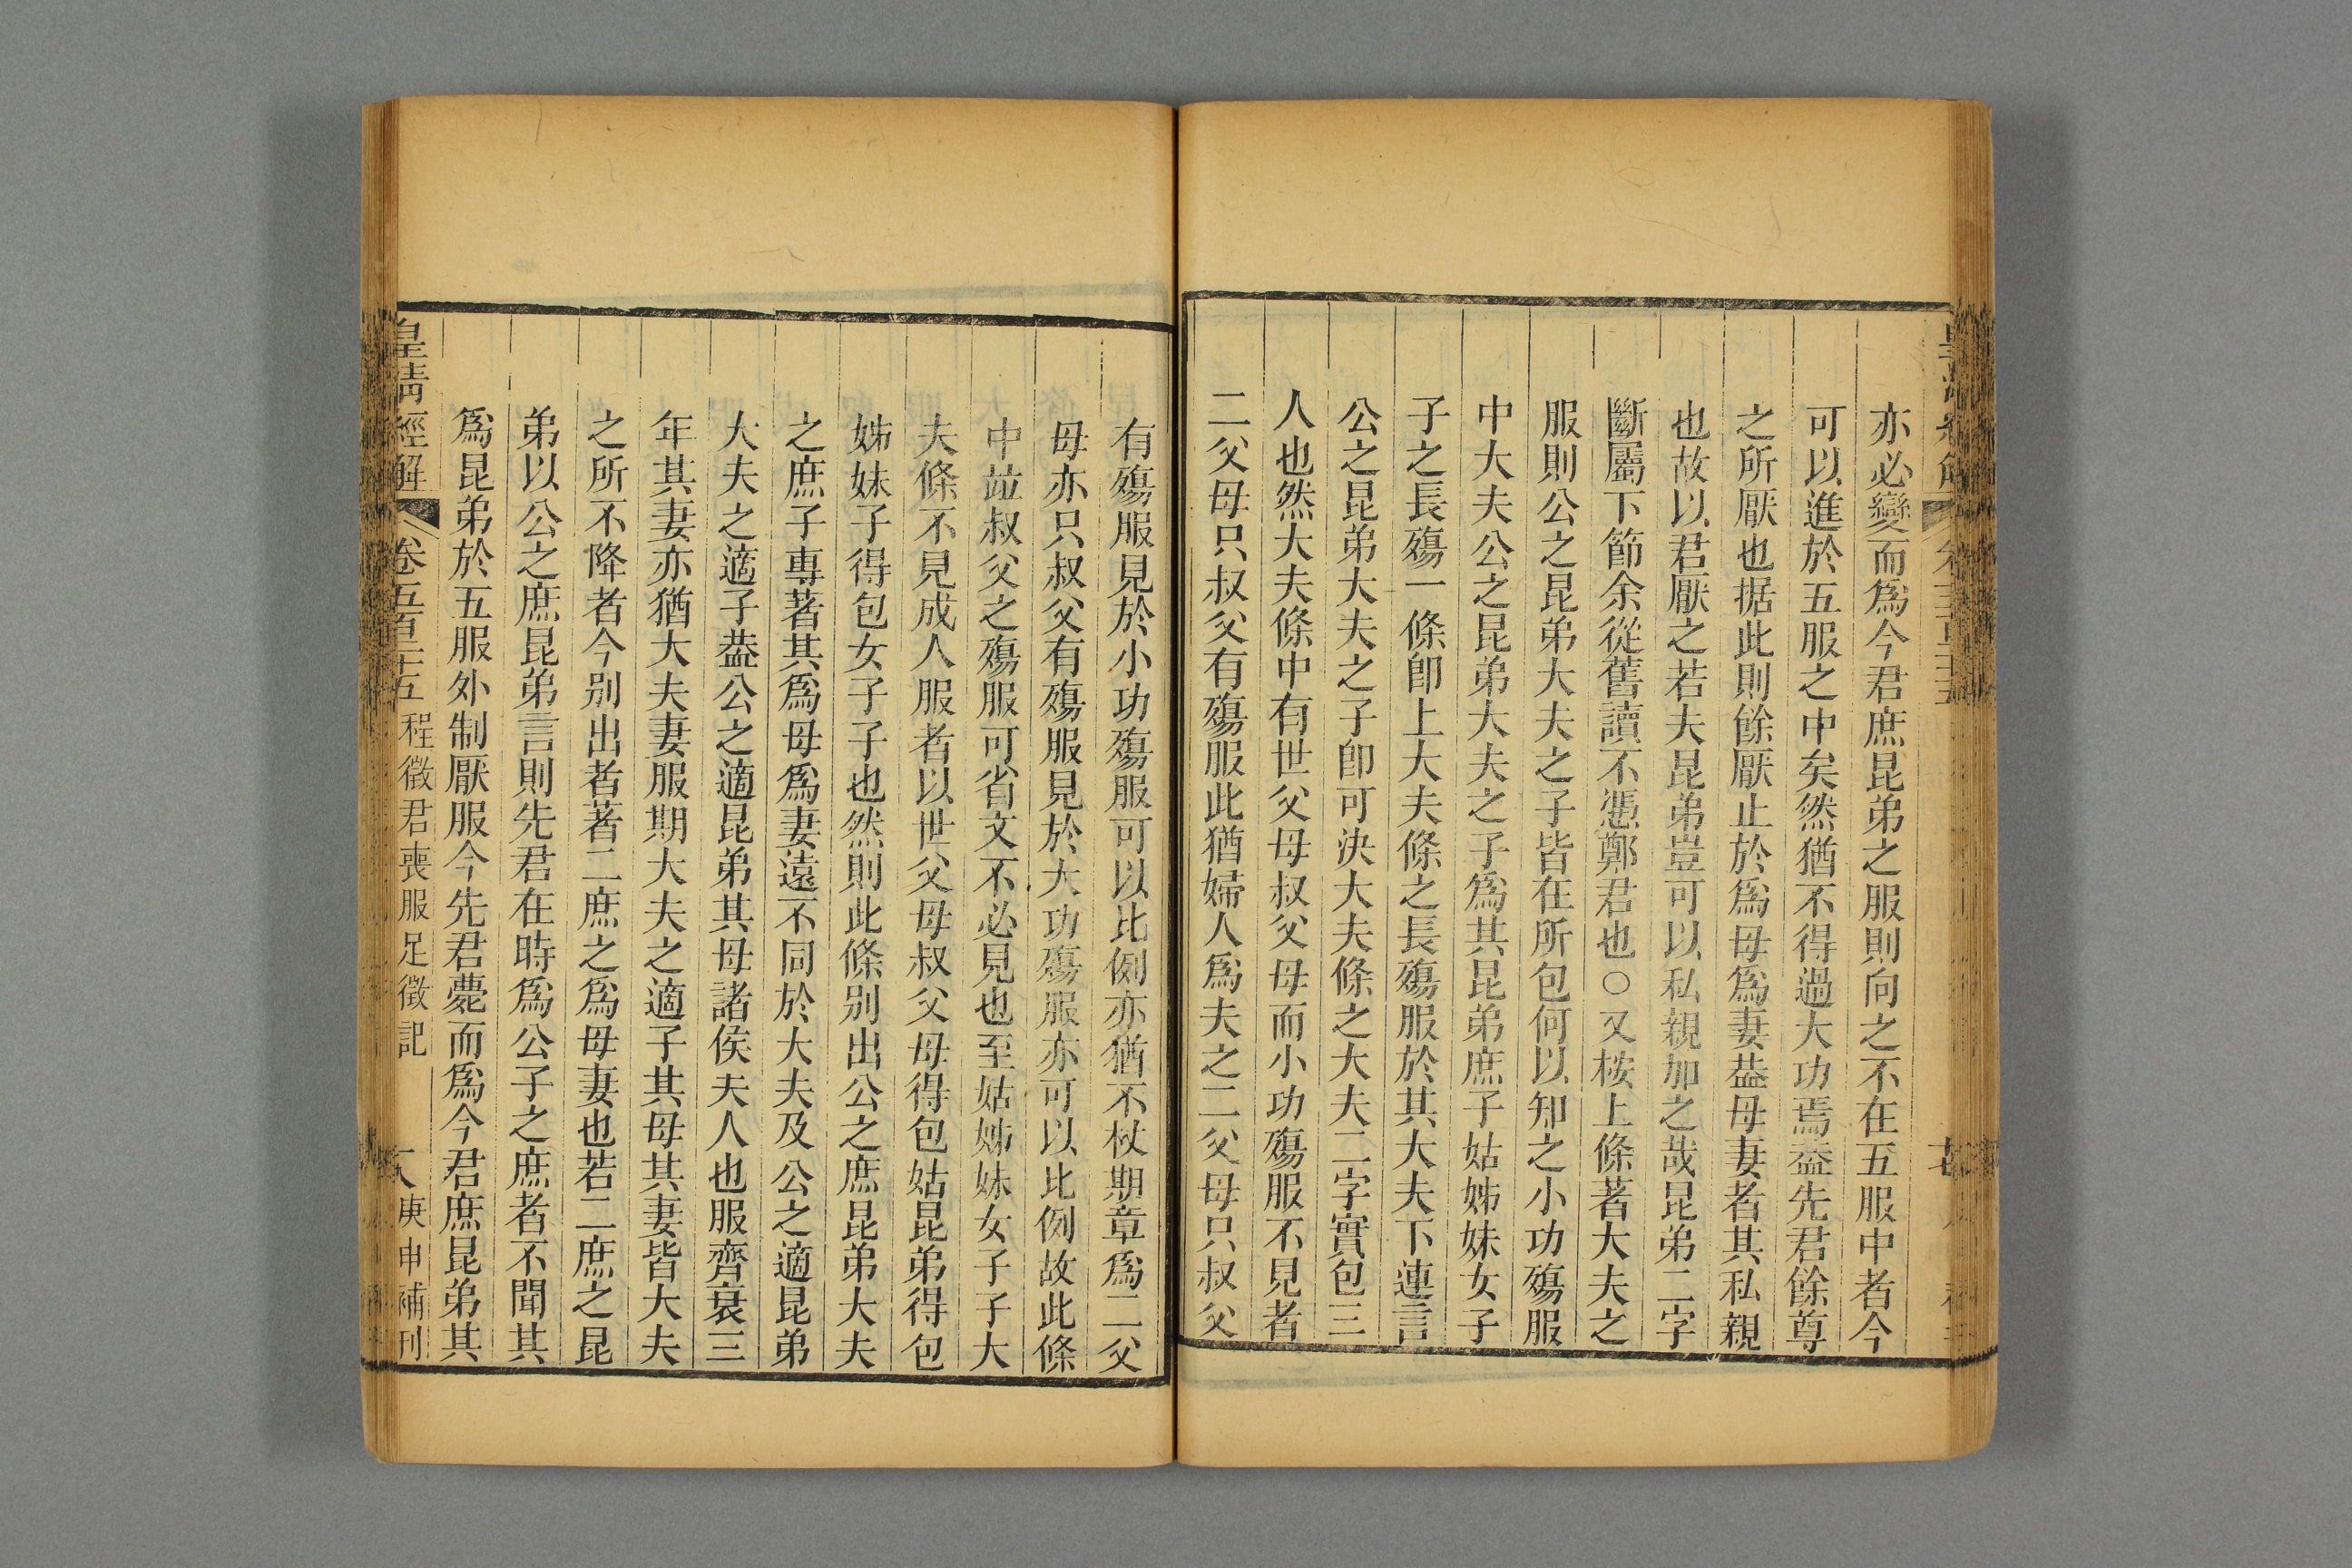 亦必變而爲今君庶昆弟之服則向之不在五服中者今
可以進於五服之中矣然猶不得過大功焉葢先君餘尊
之所厭也据此則餘厭止於爲母爲妻葢母妻者其私親
也故以君厭之若夫昆弟豈可以私親加之哉昆弟二字
斷屬下節余從舊讀不憑鄭君也○又桉上條著大夫之
服則公之昆弟大夫之子皆在所包何以知之小功殤服
中大夫公之昆弟大夫之子爲其昆弟庶子姑姊妹女子
子之長殤一條卽上大夫條之長殤服於其大夫下連言
公之昆弟大夫之子卽可決大夫條之大夫二字實包三
人也然大夫條中有世父母叔父母而小功殤服不見者
二父母只叔父有殤服此猶婦人爲夫之二父母只叔父
有殤服見於小功殤服可以比例亦猶不杖期章爲二父
母亦只叔父有殤服見於大功殤服亦可以比例故此條
中竝叔父之殤服可省文不必見也至姑姊妹女子子大
夫條不見成人服者以世父母叔父母得包姑昆弟得包
姊妹子得包女子子也然則此條别出公之庶昆弟大夫
之庶子專著其爲母爲妻遠不同於大夫及公之適昆弟
大夫之適子葢公之適昆弟其母諸侯夫人也服齊衰三
年其妻亦猶大夫妻服期大夫之適子其母其妻皆大夫
之所不降者今别出者著二庶之爲母妻也若二庶之昆
弟以公之庶昆弟言則先君在時爲公子之庶者不聞其
爲昆弟於五服外制厭服今先君薨而爲今君庶昆弟其
皇清經解 卷五百二十五 程徵君喪服足徵記 大 庚申補刊